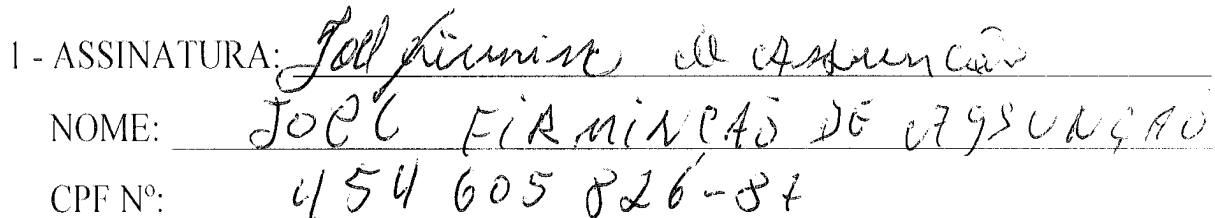 1 - ASSINATURA: Joel Firmino de Assunção
NOME: JOEL FIRMINCAO DE ASSUNÇÃO
CPF Nº: 454 605 826-87